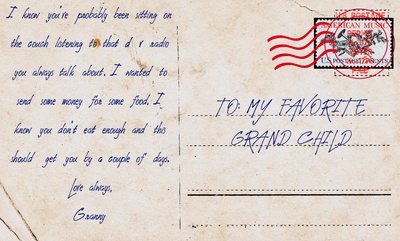 I know you're probably been sitting on
the couch listening to that d r radio
you always talk about. I wanted to
send some money for some food, I
know you don't eat enough and this
should get you by a couple of days.
Love always,
Granny
AMERICAN MUSIC
TO: MY FAVORITE
GRAND CHILD